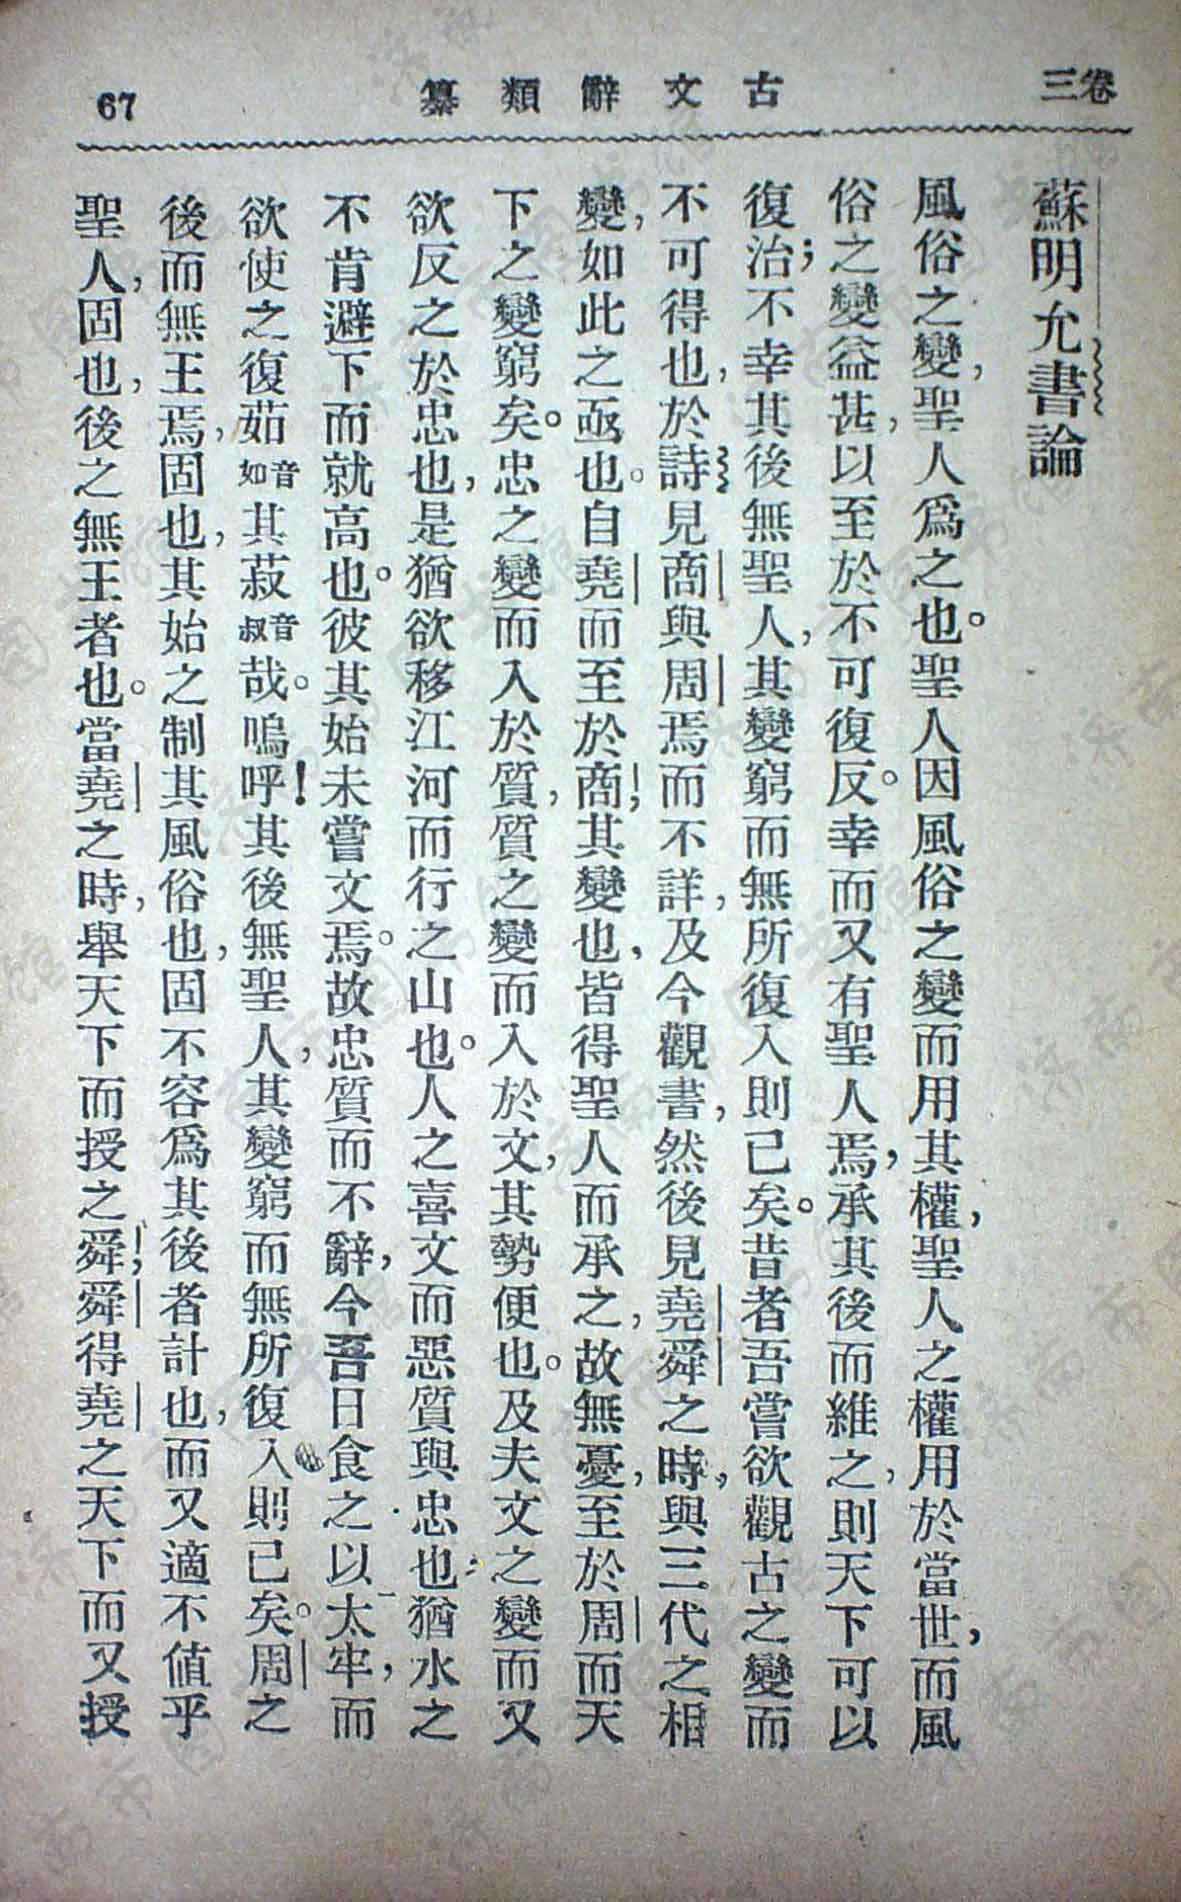 卷三
古文辭類纂
67
蘇明允書論
風俗之變，聖人爲之也。聖人因風俗之變而用其權，聖人之權用於當世，而風
俗之變益甚，以至於不可復反。幸而又有聖人焉，承其後而維之，則天下可以
復治；不幸其後無聖人，其變窮而無所復入則已矣。昔者吾嘗欲觀古之變而
不可得也，於詩見商與周焉而不詳，及今觀書，然後見堯舜之時，與三代之相
變，如此之亟也。自堯而至於商，其變也，皆得聖人而承之，故無憂，至於周而天
下之變窮矣。忠之變而入於質，質之變而入於文，其勢便也。及夫文之變而又
欲反之於忠也，是猶欲移江河而行之山也。人之喜文而惡質與忠也，猶水之
不肯避下而就高也。彼其始未嘗文焉。故忠質而不辭，今吾日食之以太牢，而
欲使之復茹音如其菽音叔哉。嗚呼！其後無聖人，其變窮而無所復入則已矣。周之
後而無王焉，固也，其始之制其風俗也，固不容爲其後者計也，而又適不值乎
聖人，固也，後之無王者也。當堯之時，舉天下而授之舜，舜得堯之天下而又授